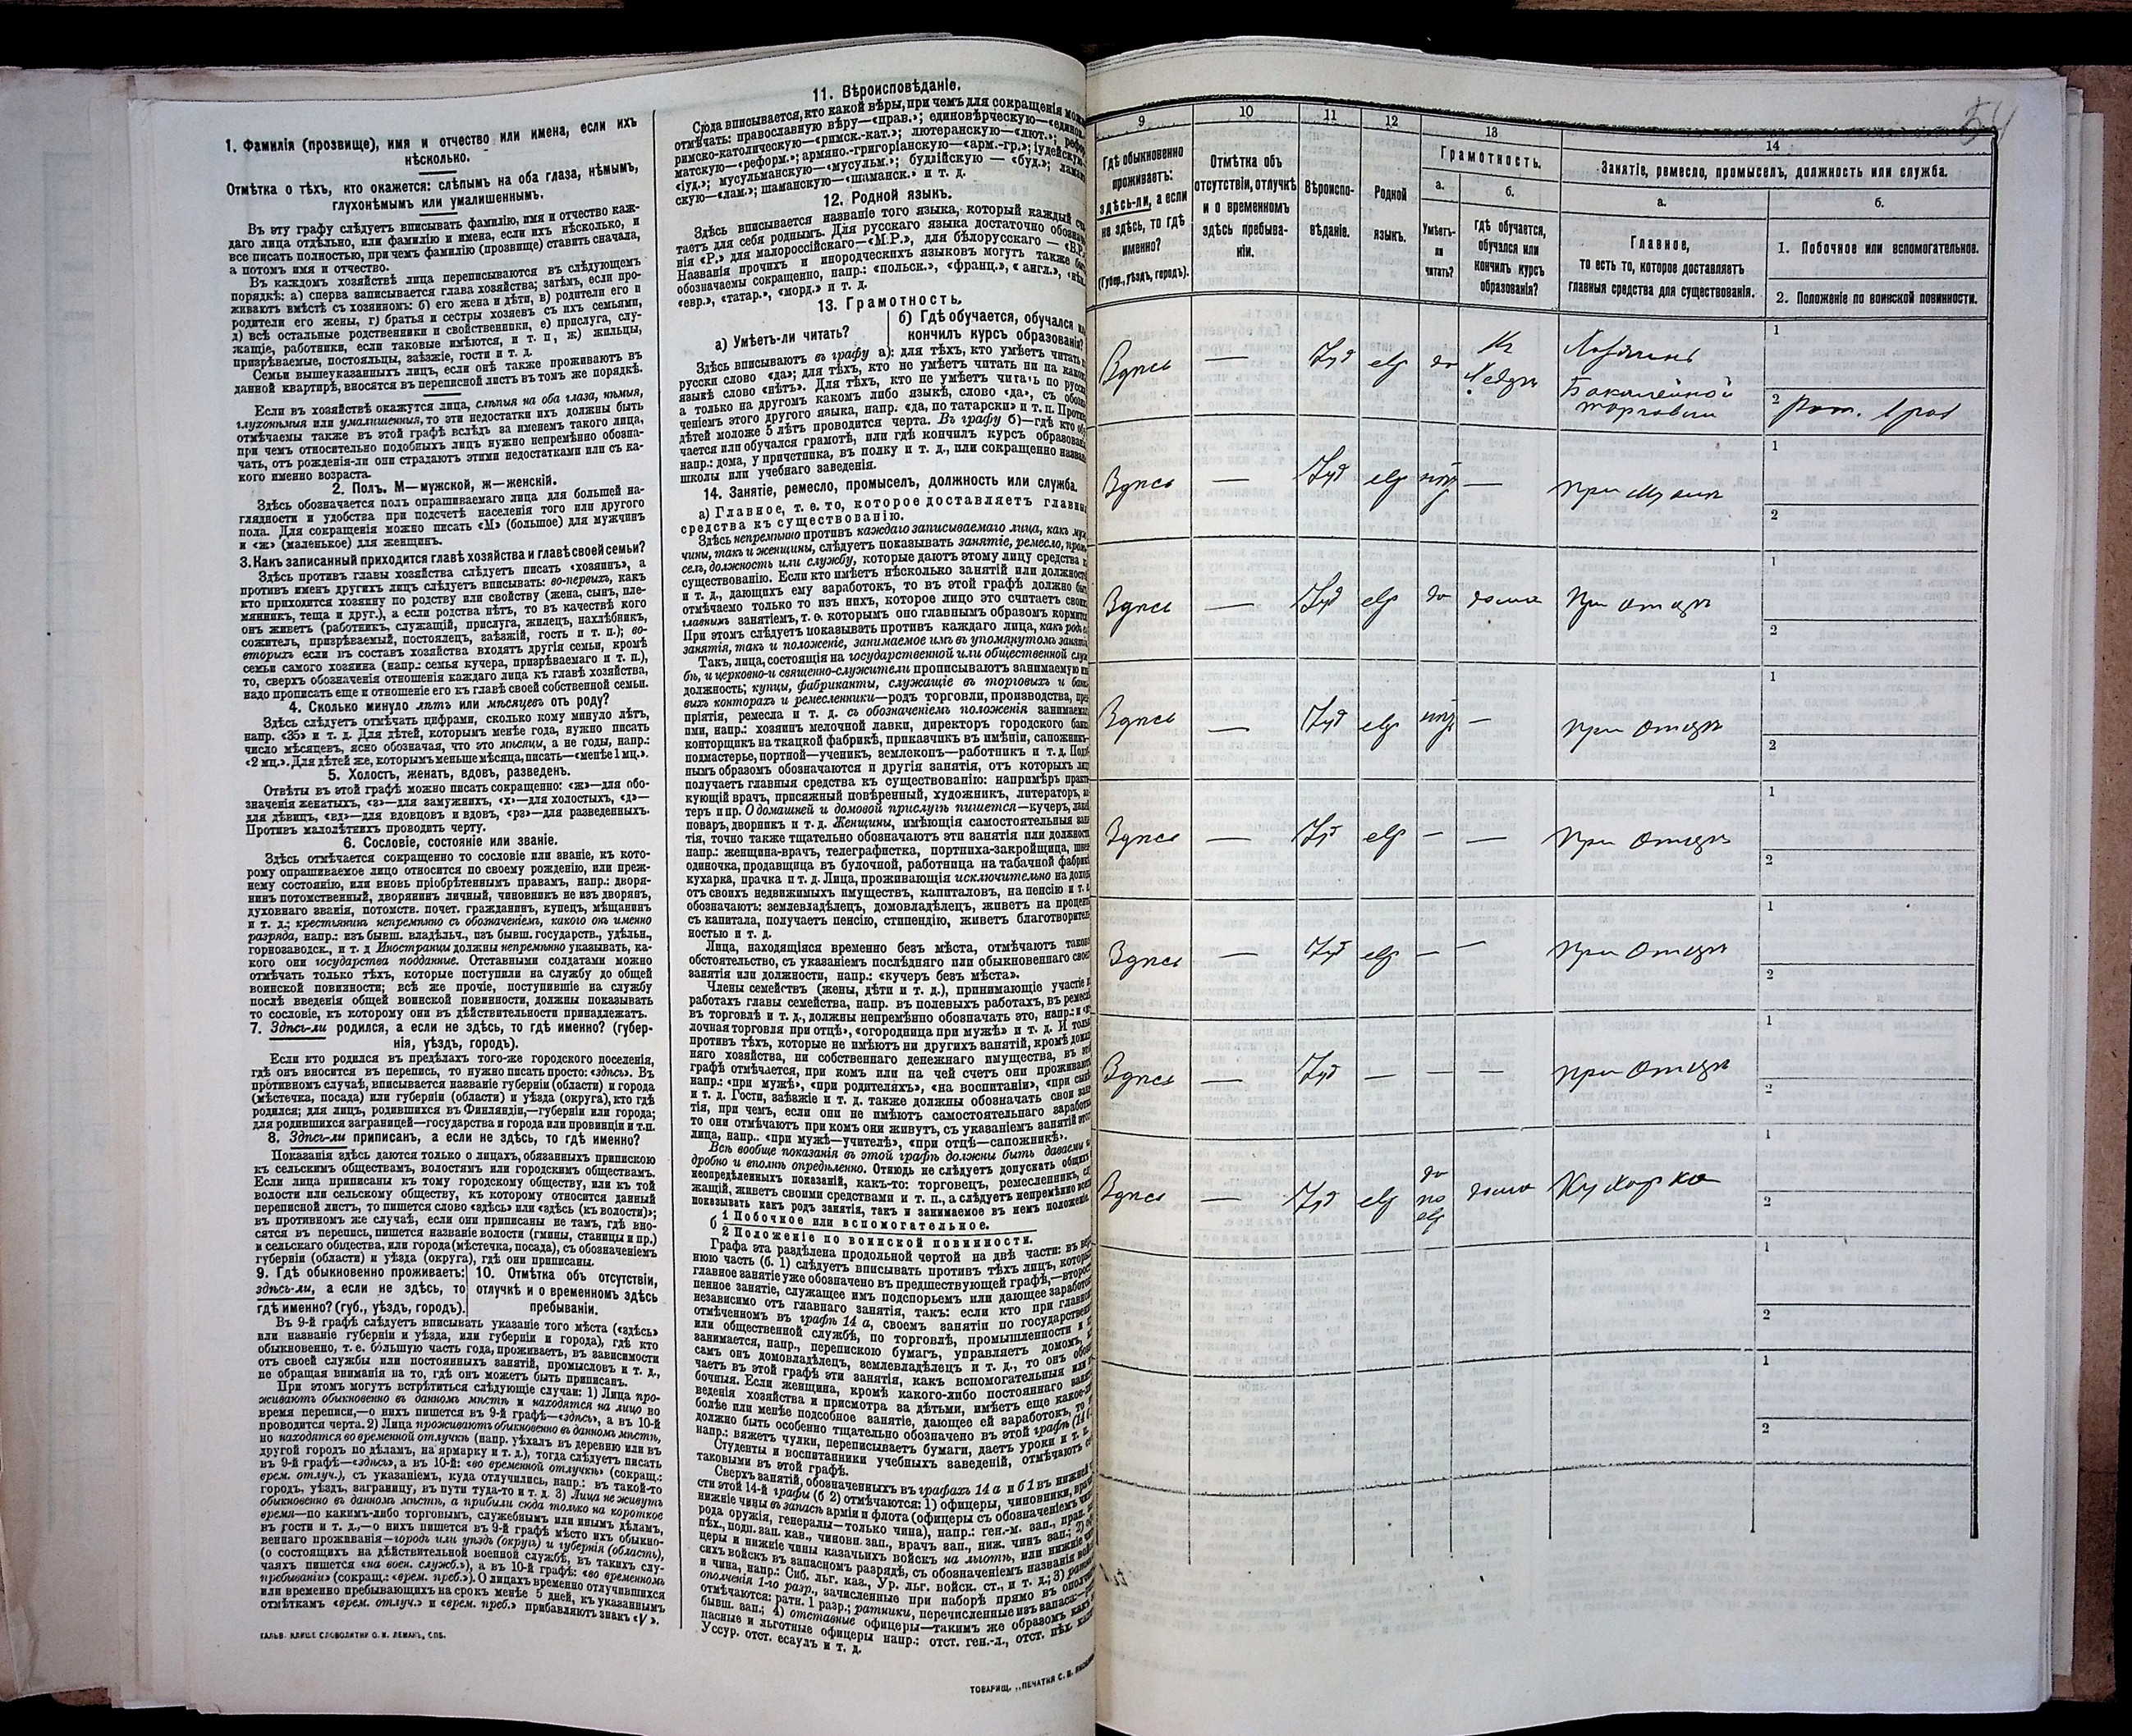 1. Фамилія (прозвище), имя и отчество или имена, если ихъ
нѣсколько.
Отмѣтка о тѣхъ, кто окажется: слѣпымъ на оба глаза, нѣмымъ,
глухонѣмымъ или умалишеннымъ.
Въ эту графу слѣдуетъ вписывать фамилію, имя и отчество каж-
даго лица отдѣльно, или фамилію и имена, если ихъ нѣсколько, и
все писать полностью, при чемъ фамилію (прозвище) ставить сначала,
а потомъ имя и отчество.
Въ каждомъ хозяйствѣ лица переписываются въ слѣдующемъ
порядкѣ: а) сперва записывается глава хозяйства; затѣмъ, если про-
живаютъ вмѣстѣ съ хозяиномъ: б) его жена и дѣти, в) родители его и
родители его жены, г) братья и сестры хозяевъ съ ихъ семьями,
д) всѣ остальные родственники и свойственники, е) прислуга, слу-
жащіе, работники, если таковые имѣются, и т. п, ж) жильцы,
призрѣваемые, постояльцы, заѣзжіе, гости и т. д.
Семьи вышеуказанныхъ лицъ, если онѣ также проживаютъ въ
данной квартирѣ, вносятся въ переписной листъ въ томъ же порядкѣ.
Если въ хозяйствѣ окажутся лица, слѣпыя на оба глаза, нѣмыя,
глухонѣмыя или умалишенныя, то эти недостатки ихъ должны быть
отмѣчаемы также въ этой графѣ вслѣдъ за именемъ такого лица,
при чемъ относительно подобныхъ лицъ нужно непремѣнно обозна-
чать, отъ рожденія-ли они страдаютъ этими недостатками или съ ка-
кого именно возраста.
2. Полъ. М—мужской, ж—женскій.
Здѣсь обозначается полъ опрашиваемаго лица для большей на-
глядности и удобства при подсчетѣ населенія того или другого
пола. Для сокращенія можно писать «М» (большое) для мужчинъ
и «ж» (маленькое) для женщинъ.
3. Какъ записанный приходится главѣ хозяйства и главѣ своей семьи?
Здѣсь противъ главы хозяйства слѣдуетъ писать «хозяинъ», а
противъ именъ другихъ лицъ слѣдуетъ вписывать: во-первыхъ, какъ
кто приходится хозяину по родству или свойству (жена, сынъ, пле-
мянникъ, теща и друг.), а если родства нѣтъ, то въ качествѣ кого
онъ живетъ (работникъ, служащій, прислуга, жилецъ, нахлѣбникъ,
сожитель, призрѣваемый, постоялецъ, заѣзжій, гость и т. п.); во-
вторыхъ если въ составъ хозяйства входятъ другія семьи, кромѣ
семьи самого хозяина (напр.: семья кучера, призрѣваемаго и т. п.),
то, сверхъ обозначенія отношенія каждаго лица къ главѣ хозяйства,
надо прописать еще и отношеніе его къ главѣ своей собственной семьи.
4. Сколько минуло лѣтъ или мѣсяцевъ отъ роду?
Здѣсь слѣдуетъ отмѣчать цифрами, сколько кому минуло лѣтъ,
напр. «35» и т. д. Для дѣтей, которымъ менѣе года, нужно писать
число мѣсяцевъ, ясно обозначая, что это мѣсяцы, а не годы, напр.:
«2 мц.». Для дѣтей же, которымъ меньше мѣсяца, писать—«менѣе 1 мц.».
5. Холостъ, женатъ, вдовъ, разведенъ.
Отвѣты въ этой графѣ можно писать сокращенно: «ж»—для обо-
значенія женатыхъ, «з»—для замужнихъ, «х»—для холостыхъ, «д»—
для дѣвицъ, «вд»—для вдовцовъ и вдовъ, «рз»—для разведенныхъ.
Противъ малолѣтнихъ проводить черту.
6. Сословіе, состояніе или званіе.
Здѣсь отмѣчается сокращенно то сословіе или званіе, къ кото-
рому опрашиваемое лицо относится по своему рожденію, или преж-
нему состоянію, или вновь пріобрѣтеннымъ правамъ, напр.: дворя-
нинъ потомственный, дворянинъ личный, чиновникъ не изъ дворянъ,
духовнаго званія, потомств. почет. гражданинъ, купецъ, мѣщанинъ
и т. д.; крестьянинъ непремѣнно съ обозначеніемъ, какого онъ именно
разряда, напр.: изъ бывш. владѣльч., изъ бывш. государств., удѣльн.,
горнозаводск., и т. д Иностранцы должны непремѣнно указывать, ка-
кого они государства подданные. Отставными солдатами можно
отмѣчать только тѣхъ, которые поступили на службу до общей
воинской повинности; всѣ же прочіе, поступившіе на службу
послѣ введенія общей воинской повинности, должны показывать
то сословіе, къ которому они въ дѣйствительности принадлежатъ.
7. Здѣсь-ли родился, а если не здѣсь, то гдѣ именно? (губер-
нія, уѣздъ, городъ).
Если кто родился въ предѣлахъ того-же городского поселенія,
гдѣ онъ вносится въ перепись, то нужно писать просто: «здѣсь». Въ
противномъ случаѣ, вписывается названіе губерніи (области) и города
(мѣстечка, посада) или губерніи (области) и уѣзда (округа), кто гдѣ
родился; для лицъ, родившихся въ Финляндіи,—губерніи или города;
для родившихся заграницей—государства и города или провинціи и т.п.
8. Здѣсь-ли приписанъ, а если не здѣсь, то гдѣ именно?
Показанія здѣсь даются только о лицахъ, обязанныхъ припискою
къ сельскимъ обществамъ, волостямъ или городскимъ обществамъ.
Если лица приписаны къ тому городскому обществу, или къ той
волости или сельскому обществу, къ которому относится данный
переписной листъ, то пишется слово «здѣсь» или «здѣсь (къ волости)»;
въ противномъ же случаѣ, если они приписаны не тамъ, гдѣ вно-
сятся въ перепись, пишется названіе волости (гмины, станицы и пр.)
и сельскаго общества, или города (мѣстечка, посада), съ обозначеніемъ
губерніи (области) и уѣзда (округа), гдѣ они приписаны.
9. Гдѣ обыкновенно проживаетъ:
здѣсь-ли, а если не здѣсь, то
гдѣ именно? (губ., уѣздъ, городъ).
10. Отмѣтка объ отсутствіи,
отлучкѣ и о временномъ здѣсь
пребываніи.
Въ 9-й графѣ слѣдуетъ вписывать указаніе того мѣста («здѣсь»
или названіе губерніи и уѣзда, или губерніи и города), гдѣ кто
обыкновенно, т. е. большую часть года, проживаетъ, въ зависимости
отъ своей службы или постоянныхъ занятій, промысловъ и т. д.,
не обращая вниманія на то, гдѣ онъ можетъ быть приписанъ.
При этомъ могутъ встрѣтиться слѣдующіе случаи: 1) Лица про-
живаютъ обыкновенно въ данномъ мѣстѣ и находятся на лицо во
время переписи,—о нихъ пишется въ 9-й графѣ—«здѣсь», а въ 10-й
проводится черта. 2) Лица проживаютъ обыкновенно въ данномъ мѣстѣ,
но находятся во временной отлучкѣ (напр. уѣхалъ въ деревню или въ
другой городъ по дѣламъ, на ярмарку и т. д.), тогда слѣдуетъ писать
въ 9-й графѣ—«здѣсь», а въ 10-й: «во временной отлучкѣ» (сокращ.:
врем. отлуч.), съ указаніемъ, куда отлучились, напр.: въ такой-то
городъ, уѣздъ, заграницу, въ пути туда-то и т. д. 3) Лица не живутъ
обыкновенно въ данномъ мѣстѣ, а прибыли сюда только на короткое
время—по какимъ-либо торговымъ, служебнымъ или инымъ дѣламъ,
въ гости и т. д.,—о нихъ пишется въ 9-й графѣ мѣсто ихъ обыкно-
веннаго проживанія—городъ или уѣздъ (округъ) и губернія (область),
(о состоящихъ на дѣйствительной военной службѣ, въ такихъ слу-
чаяхъ пишется «на воен. служб.»), а въ 10-й графѣ: «во временномъ
пребываніи» (сокращ.: «врем. преб.»). О лицахъ временно отлучившихся
или временно пребывающихъ на срокъ менѣе 5 дней, къ указаннымъ
отмѣткамъ «врем. отлуч.» и «врем. преб.» прибавляютъ знакъ «V».
ГАЛЬВ. КЛИШЕ СЛОВОЛИТНИ О. И. ЛЕМАНЪ, СПБ.
11. Вѣроисповѣданіе.
Сюда вписывается, кто какой вѣры, при чемъ для сокращенія
отмѣчать: православную вѣру—«прав.»; единовѣрческую—
римско-католическую—«римск.-кат.»; лютеранскую—«лют.»;
матскую—«реформ.»; армяно.-григоріанскую—«арм.-гр.»;
«іуд.»; мусульманскую—«мусульм.»; буддійскую — «буд.»;
скую—«лам.»; шаманскую—«шаманск.» и т. д.
12. Родной языкъ.
Здѣсь вписывается названіе того языка, который каждый
таетъ для себя роднымъ. Для русскаго языка достаточно
нія «Р.» для малороссійскаго—«М.Р.», для бѣлорусскаго —
Названія прочихъ и инородческихъ языковъ могутъ также
обозначаемы сокращенно, напр.: «польск.», «франц.», « англ.»,
«евр.», «татар.», «морд.» и т. д.
13. Грамотность.
а) Умѣетъ-ли читать?
б) Гдѣ обучается, обучался или
кончилъ курсъ образованія?
Здѣсь вписываютъ въ графу а): для тѣхъ, кто умѣетъ читать
русски слово «да»; для тѣхъ, кто не умѣетъ читать ни на
языкѣ слово «нѣтъ». Для тѣхъ, кто не умѣетъ читать по
а только на другомъ какомъ либо языкѣ, слово «да», съ
ченіемъ этого другого языка, напр. «да, по татарски» и т. п.
дѣтей моложе 5 лѣтъ проводится черта. Въ графу б)—гдѣ кто
чается или обучался грамотѣ, или гдѣ кончилъ курсъ
напр.: дома, у причетника, въ полку и т. д., или сокращенно
школы или учебнаго заведенія.
14. Занятіе, ремесло, промыселъ, должность или служба.
а) Главное, т. е. то, которое доставляетъ
средства къ существованію.
Здѣсь непремѣнно противъ каждаго записываемаго лица, какъ
чины, такъ и женщины, слѣдуетъ показывать занятіе, ремесло,
селъ, должность или службу, которые даютъ этому лицу средства
существованію. Если кто имѣетъ нѣсколько занятій или
и т. д., дающихъ ему заработокъ, то въ этой графѣ должно
отмѣчаемо только то изъ нихъ, которое лицо это считаетъ
главнымъ занятіемъ, т. е. которымъ оно главнымъ образомъ
При этомъ слѣдуетъ показывать противъ каждаго лица, какъ
занятія, такъ и положеніе, занимаемое имъ въ упомянутомъ
Такъ, лица, состоящія на государственной или общественной
бѣ, и церковно-и священно-служители прописываютъ занимаемую
должность; купцы, фабриканты, служащіе въ торговыхъ и
выхъ конторахъ и ремесленники—родъ торговли, производства,
пріятія, ремесла и т. д. съ обозначеніемъ положенія
ими, напр.: хозяинъ мелочной лавки, директоръ городского
конторщикъ на ткацкой фабрикѣ, приказчикъ въ имѣніи,
подмастерье, портной—ученикъ, землекопъ—работникъ и т. д.
нымъ образомъ обозначаются и другія занятія, отъ которыхъ
получаетъ главныя средства къ существованію: напримѣръ
кующій врачъ, присяжный повѣренный, художникъ, литераторъ,
теръ и пр. О домашней и домовой прислугѣ пишется—кучеръ,
поваръ, дворникъ и т. д. Женщины, имѣющія самостоятельныя
тія, точно также тщательно обозначаютъ эти занятія или
напр.: женщина-врачъ, телеграфистка, портниха-закройщица,
одиночка, продавщица въ булочной, работница на табачной
кухарка, прачка и т. д. Лица, проживающія исключительно на
отъ своихъ недвижимыхъ имуществъ, капиталовъ, на пенсію и т.
обозначаютъ: землевладѣлецъ, домовладѣлецъ, живетъ на
съ капитала, получаетъ пенсію, стипендію, живетъ
ностью и т. д.
Лица, находящіяся временно безъ мѣста, отмѣчаютъ
обстоятельство, съ указаніемъ послѣдняго или обыкновеннаго
занятія или должности, напр.: «кучеръ безъ мѣста».
Члены семействъ (жены, дѣти и т. д.), принимающіе участіе
работахъ главы семейства, напр. въ полевыхъ работахъ, въ
въ торговлѣ и т. д., должны непремѣнно обозначать это, напр.:
лочная торговля при отцѣ», «огородница при мужѣ» и т. д. И
противъ тѣхъ, которые не имѣютъ ни другихъ занятій, кромѣ
няго хозяйства, ни собственнаго денежнаго имущества, въ
графѣ отмѣчается, при комъ или на чей счетъ они
напр.: «при мужѣ», «при родителяхъ», «на воспитаніи», «при
и т. д. Гости, заѣзжіе и т. д. также должны обозначать свои
тія, при чемъ, если они не имѣютъ самостоятельнаго
то они отмѣчаютъ при комъ они живутъ, съ указаніемъ занятій
лица, напр., «при мужѣ—учителѣ», «при отцѣ—сапожникѣ».
Всѣ вообще показанія въ этой графѣ должны быть даваемы
дробно и вполнѣ опредѣленно. Отнюдь не слѣдуетъ допускать
неопредѣленныхъ показаній, какъ-то: торговецъ, ремесленникъ,
жащій, живетъ своими средствами и т. п., а слѣдуетъ непремѣнно
показывать какъ родъ занятія, такъ и занимаемое въ немъ
б 1 Побочное или вспомогательное.
2 Положеніе по воинской повинности.
Графа эта раздѣлена продольной чертой на двѣ части: въ
нюю часть (б. 1) слѣдуетъ вписывать противъ тѣхъ лицъ,
главное занятіе уже обозначено въ предшествующей графѣ,—
пенное занятіе, служащее имъ подспорьемъ или дающее
независимо отъ главнаго занятія, такъ: если кто при
отмѣченномъ въ графѣ 14 а, своемъ занятіи по
или общественной службѣ, по торговлѣ, промышленности и
занимается, напр., перепискою бумагъ, управляетъ домомъ,
самъ онъ домовладѣлецъ, землевладѣлецъ и т. д., то онъ
чаетъ въ этой графѣ эти занятія, какъ вспомогательныя или
бочныя. Если женщина, кромѣ какого-либо постояннаго
веденія хозяйства и присмотра за дѣтьми, имѣетъ еще
болѣе или менѣе подсобное занятіе, дающее ей заработокъ, то
должно быть особенно тщательно обозначено въ этой графѣ
напр.: вяжетъ чулки, переписываетъ бумаги, даетъ уроки и т. п.
Студенты и воспитанники учебныхъ заведеній, отмѣчаютъ
таковыми въ этой графѣ.
Сверхъ занятій, обозначенныхъ въ графахъ 14 а и б 1 въ нижней
сти этой 14-й графы (б 2) отмѣчаются: 1) офицеры, чиновники,
нижніе чины въ запасѣ арміи и флота (офицеры съ обозначеніемъ
рода оружія, генералы—только чина), напр.: ген.-м. зап.,
пѣх., подп. зап. кав., чиновн. зап., врачъ зап., ниж. чинъ зап.;
церы и нижніе чины казачьихъ войскъ на льготѣ, или
сихъ войскъ въ запасномъ разрядѣ, съ обозначеніемъ названія
и чина, напр.: Сиб. льг. каз., Ур. льг. войск. ст., и т. д.; 3)
ополченія 1-го разр., зачисленные при наборѣ прямо въ
отмѣчаются: ратн. 1 разр.; ратники, перечисленные изъ запаса:
бывш. зап.; 4) отставные офицеры—такимъ же образомъ какъ
пасные и льготные офицеры напр.: отст. ген.-л., отст. пѣх.
Уссур. отст. есаулъ и т. д.
ТОВАРИЩ. „ПЕЧАТНЯ С. П.
54
9
10
11
12
13
14
Гдѣ обыкновенно
проживаетъ:
здѣсь-ли, а если
не здѣсь, то гдѣ
именно?
(Губер., уѣздъ, городъ).
Отмѣтка объ
отсутствіи, отлучкѣ
и о временномъ
здѣсь пребыва-
ніи.
Вѣроиспо-
вѣданіе.
Родной
языкъ.
Грамотность.
а.
б.
Умѣетъ-
ли
читать?
Гдѣ обучается,
обучался или
кончилъ курсъ
образованія?
Занятіе, ремесло, промыселъ, должность или служба.
а.
б.
Главное,
то есть то, которое доставляетъ
главныя средства для существованія.
1. Побочное или вспомогательное.
2. Положеніе по воинской повинности.
Здѣсь — Іуд евр да
Бакалейной
торговли
1
2 Рат. 1 раз
Здѣсь — Іуд евр нѣт — при Мужѣ
1
2
Здѣсь — Іуд евр да дома При отцѣ
1
2
Здѣсь — Іуд евр нѣт — при Отцѣ
1
2
Здѣсь — Іуд евр — — При Отцѣ
1
2
Здѣсь — Іуд евр — — При Отцѣ
1
2
Здѣсь — Іуд — — — при Отцѣ
1
2
Здѣсь — Іуд евр да по евр дома Кухарка
1
2
1
2
1
2